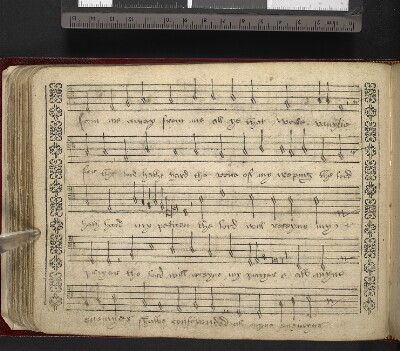 from me away from me all ye that worke vanytie
for the lord hathe hard the voice of my weping the lord
hath hard my peticion the lord will receyve my
prayer the lord will receyve my prayer & all myne
enemyes shalbe confounded all myne enemyes